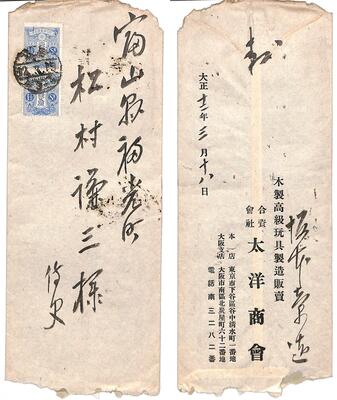 富山県福光町
松村謙三様
侍史
大正十二年三月十八日
木製高級玩具製造販賣
合資會社 太洋商會
本店 東京市下谷區谷中清水町一番地
大阪支店 大阪市南區北炭屋町六十二番地
電話南三二八二番